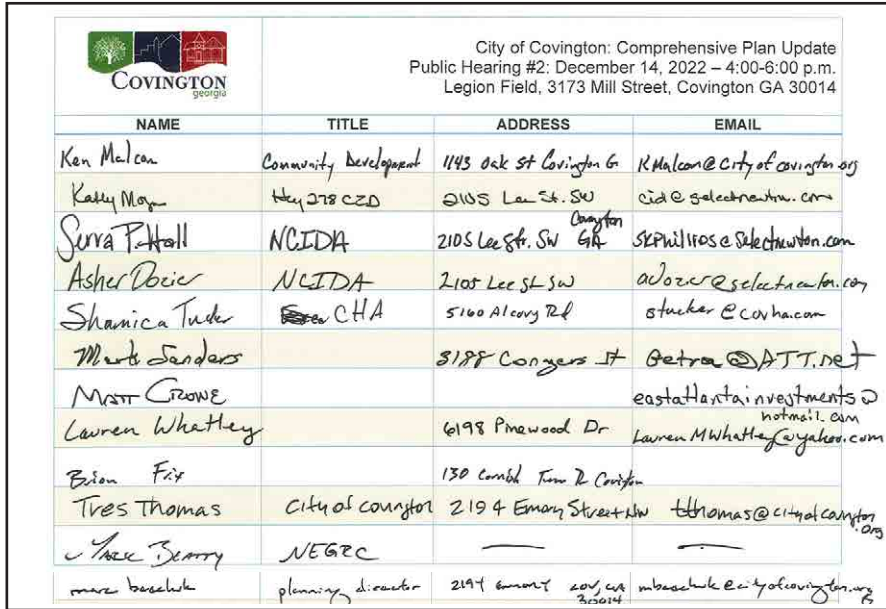 COVINGTON
georgia
City of Covington: Comprehensive Plan Update
Public Hearing #2: December 14, 2022 – 4:00-6:00 p.m.
Legion Field, 3173 Mill Street, Covington GA 30014
NAME TITLE ADDRESS EMAIL
Ken Malcom Community Development 1143 Oak St Covington G KMalcom@Cityofcovington.org
Kathy Hwy 278 CID 2105 Lee St. SW cid@selectnewton.com
Serra P. Hall NCIDA 2105 Lee Str. SW Covington GA skphillips@selectnewton.com
Asher Dozier NCIDA 2105 Lee St SW adozier@selectnewton.com
Shamica Tucker CHA 5160 Alcovy Rd stucker@covha.com
Mark Sanders 3188 Conyers St @ATT.net
MATT CROWE eastatlantainvestments@
hotmail.com
Lauren Whatley 6198 Pinewood Dr LaurenMWhatley@yahoo.com
Brian Fix 130 Cornish Dr Covington
Tres Thomas City of covington 2194 Emory Street NW tthomas@cityofcovington
.org
Mark Beatty NEGRC — —
marc beechuk planning director 2194 emory cov, GA
30014